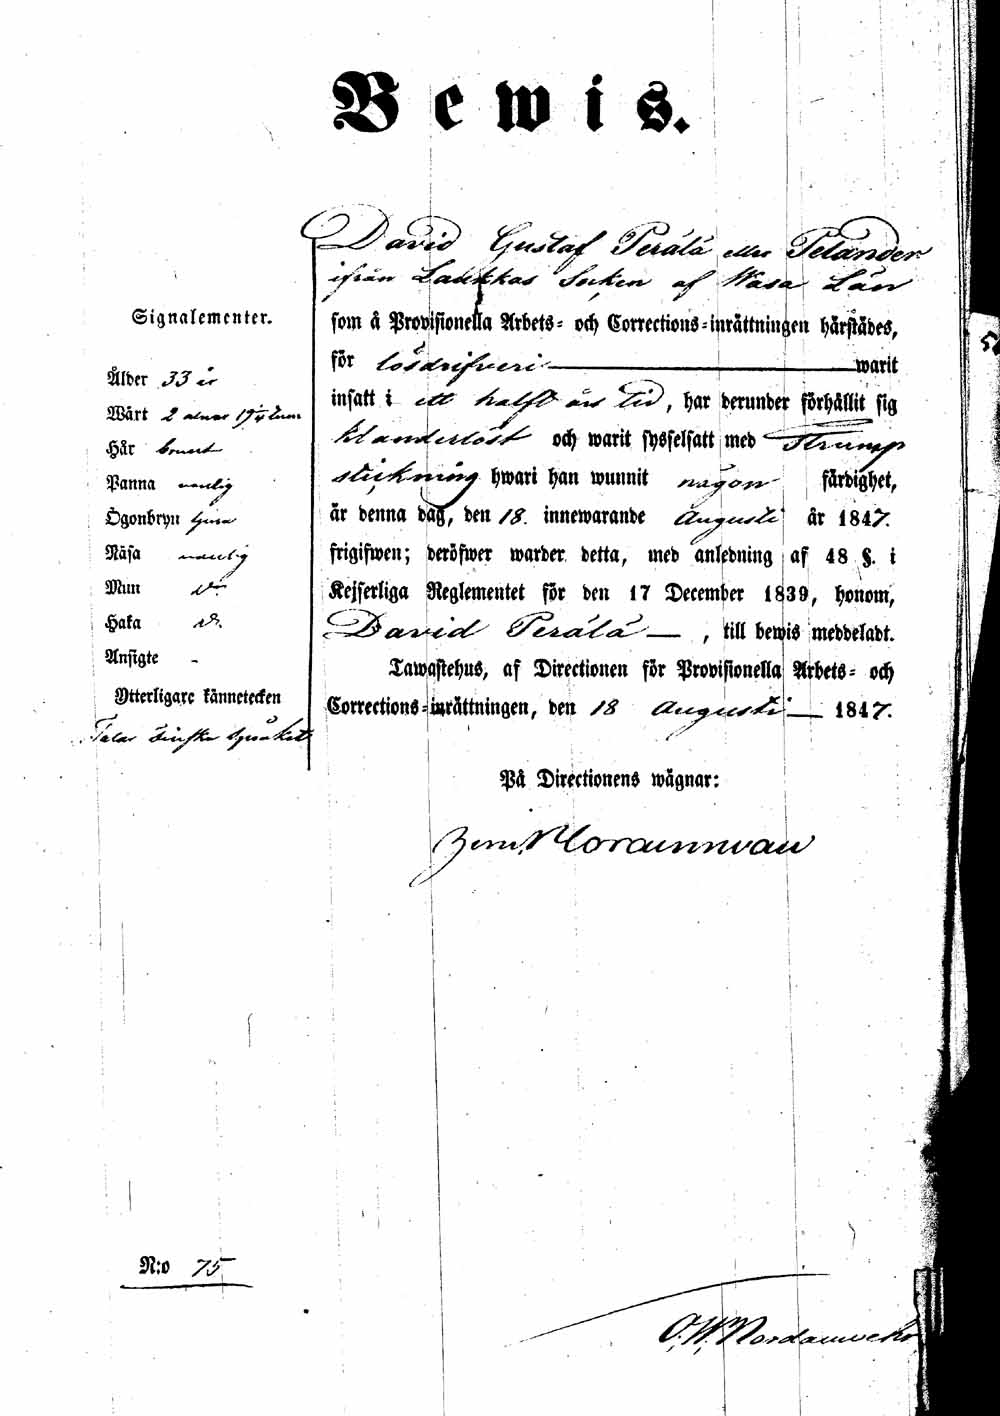 Bewis.
David Gustaf Perälä eller Pelander
ifrån Laukkas Socken af Wasa Län
som å Provisionella Arbets= och Corrections=inrättningen härstädes,
för lösdrifveri warit
insatt i ett halft års tid, har derunder förhållit sig
klanderlöst och warit sysselsatt med Strump
stickning hwari han wunnit någon färdighet,
är denna dag, den 18. innewarande Augusti år 1847.
frigifwen; deröfwer warder detta, med anledning af 48 §. i
Kejserliga Reglementet för den 17 December 1839, honom,
David Perälä —, till bewis meddeladt.
Tawastehus, af Directionen för Provisionella Arbets= och
Corrections=inrättningen, den 18 Augusti — 1847.
På Directionens wägnar:
Signalementer.
Ålder 33 år
Wärt 2 alnar
Hår brunt
Panna vanlig
Ögonbryn ljusa
Näsa vanlig
Mun d:o
Haka d:o
Ansigte -
Ytterligare kännetecken
Talar finska språket
N:o 75